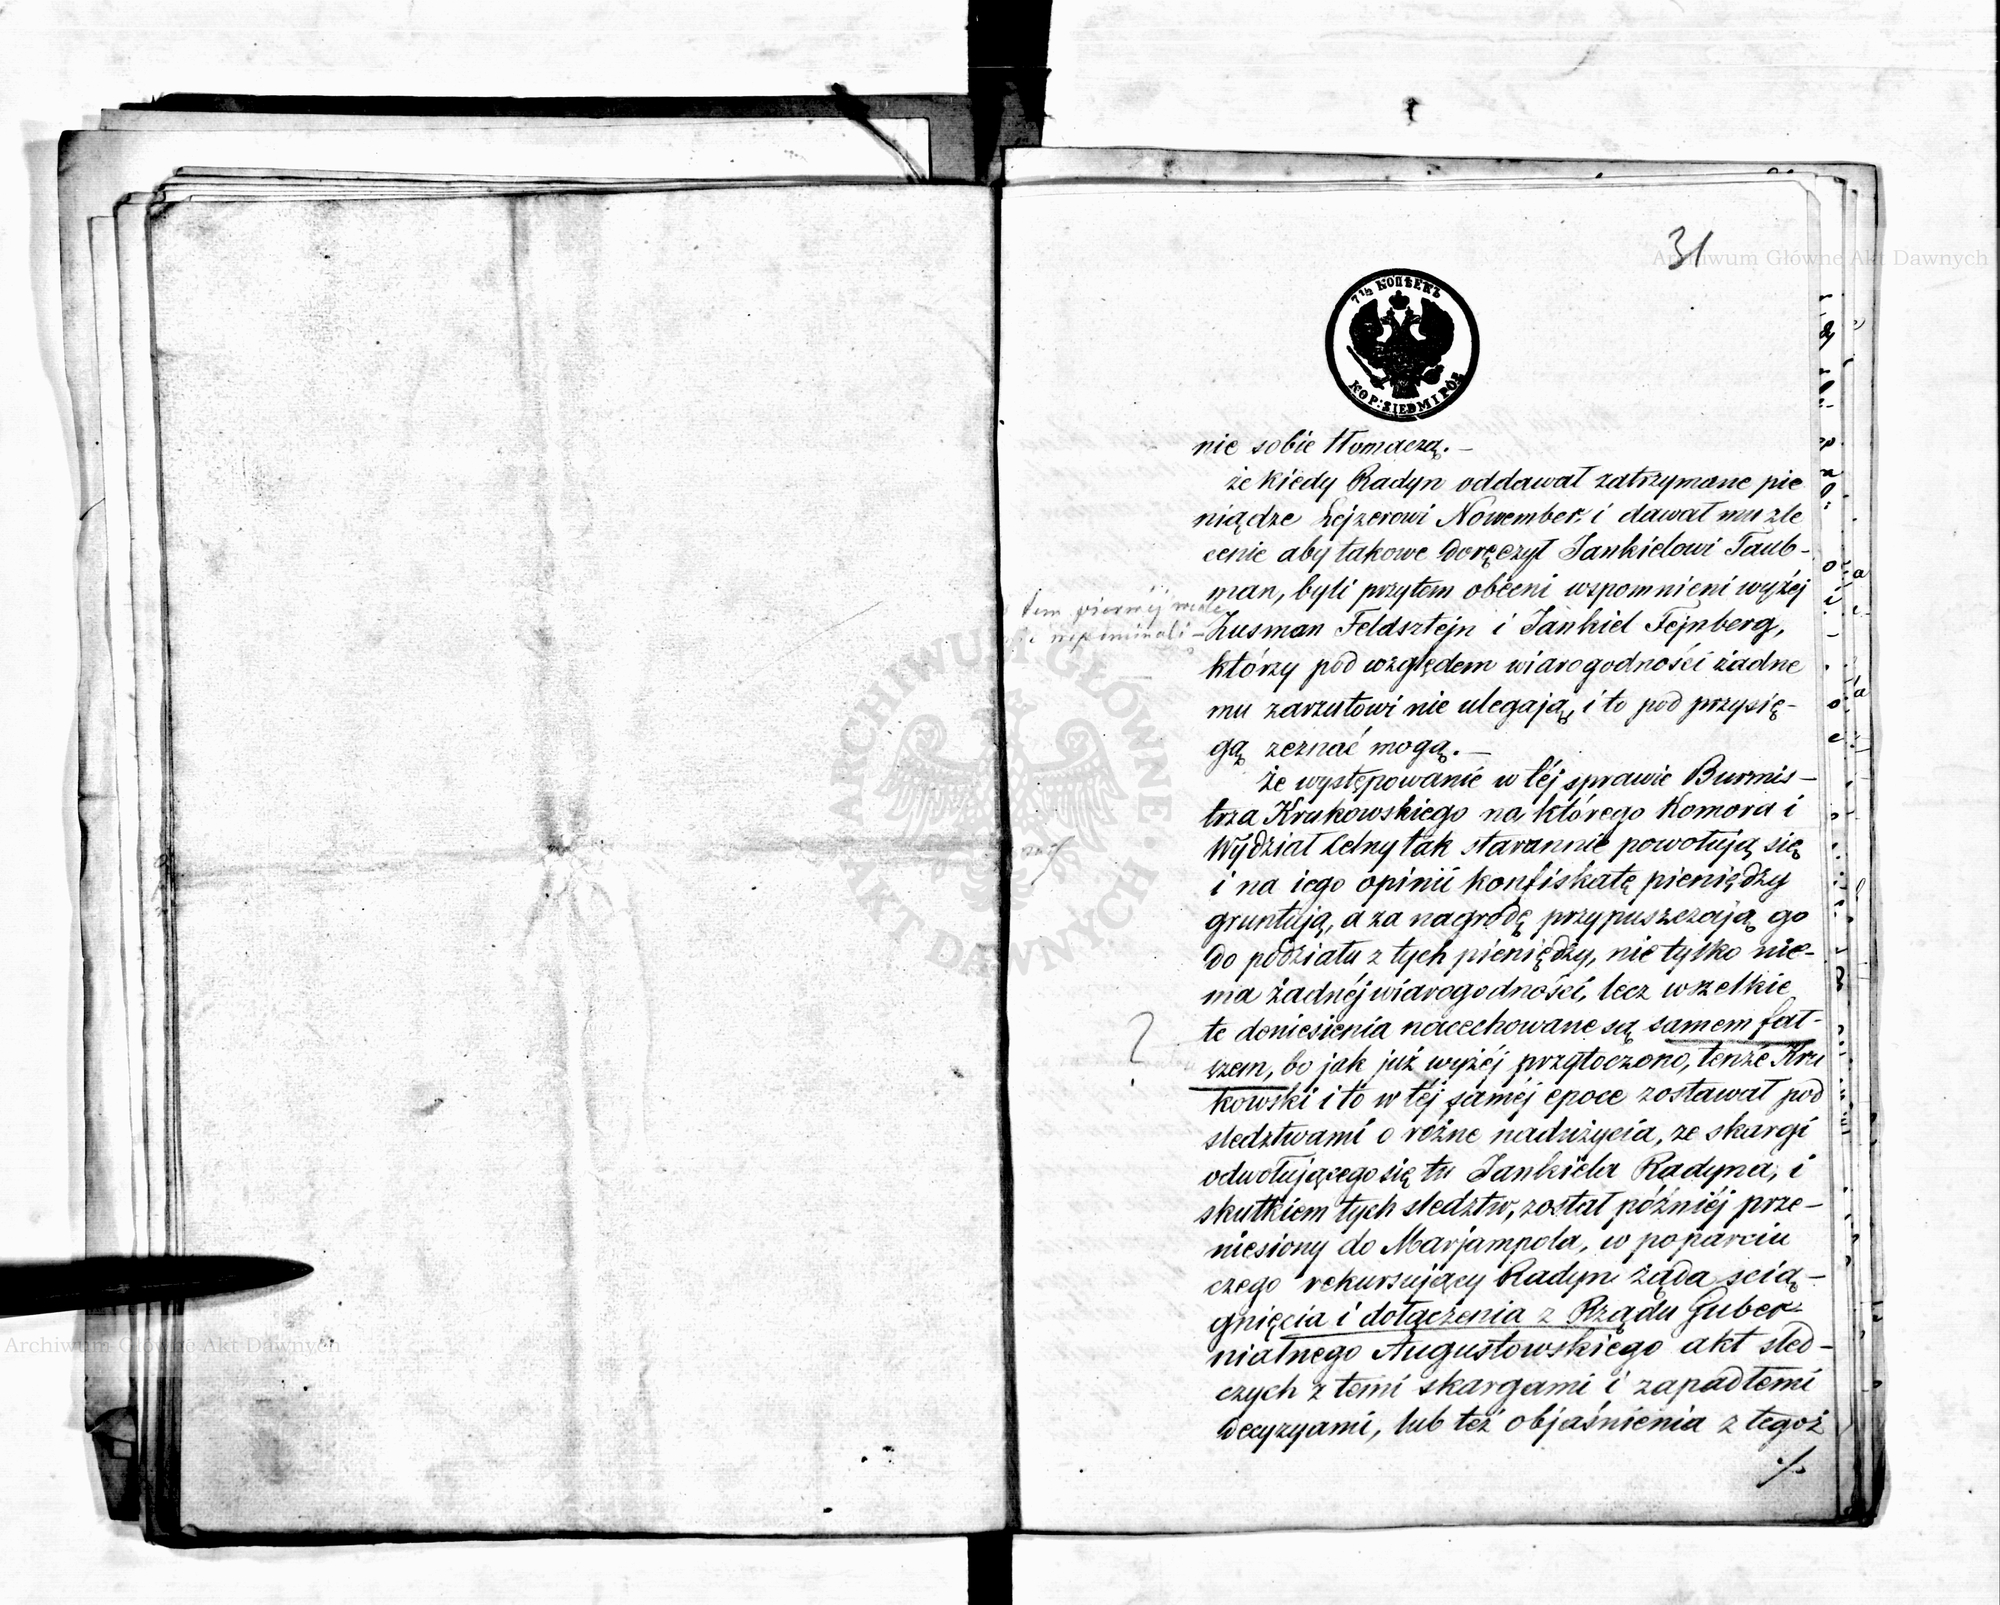 31
7 1/2 КОПѢЕКЪ
KOP: SIEDMIPÓŁ
nie sobie tłomaczą. —
że kiedy Radyn oddawał zatrzymane pie
niądze Lejzerowi Nowember: i dawał mu zle
cenie aby takowe doręczył Jankielowi Taub-
man, byli przytem obecni wspomnieni wyżéj
Zusman Feldsztejn i Jankiel Fejnberg,
którzy pod względem wiarogodności żadne
mu zarzutowi nie ulegają, i to pod przysię-
gą zeznać mogą. —
że występowanie w téj sprawie Burmis-
trza Krukowskiego na którego Komora i
Wydział Celny tak starannie powołują się
i na iego opinii konfiskatę pieniędzy
gruntują, a za nagrodę przypuszczają go
do podziału z tych pieniędzy, nie tylko nie-
ma żadnéj wiarogodności, lecz wszelkie
te doniesienia nacechowane są samem fał-
szem, bo jak już wyżéj przytoczono, tenże Kru
kowski i to w téj saméj epoce zostawał pod
sledztwami o różne nadużycia, ze skargi
odwołującego się tu Jankiela Radyna, i
skutkiem tych sledztw, został późniéj prze-
niesiony do Marjampola, w poparciu
czego rekursujący Radyn żąda scią-
gnięcia i dołączenia z Rządu Guber-
nialnego Augustowskiego akt sled-
czych z temi skargami i zapadłemi
decyzyami, lub też objaśnienia z tegoż
./.
tem pierwéj wcale
nie wspominali —
?
ARCHIWUM GŁÓWNE AKT DAWNYCH
Archiwum Główne Akt Dawnych
Archiwum Główne Akt Dawnych